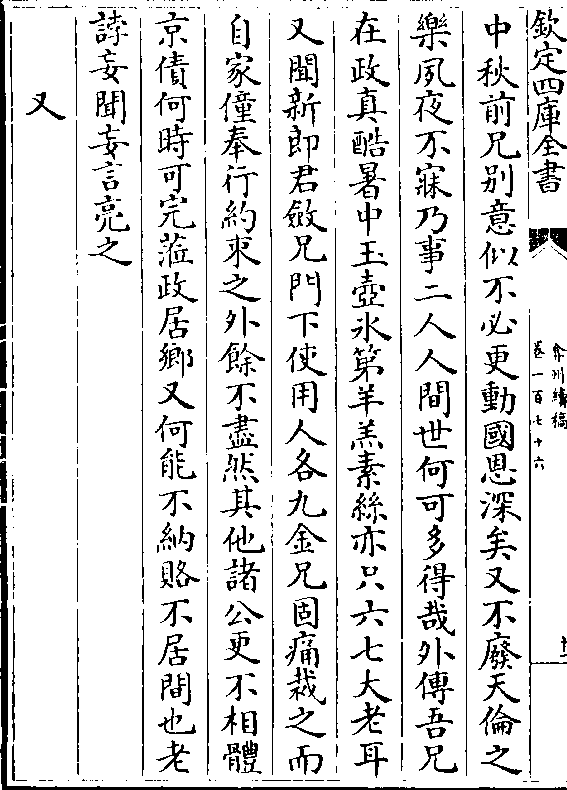 欽定四庫全書
弇州續稿
卷一百七十六
中秋前兄别意似不必更動國恩深矣又不廢天倫之
樂夙夜不寐乃事二人人間世何可多得哉外傳吾兄
在政真酷暑中玉壺氷第羊羔素絲亦只六七大老耳
又聞新郎君斂兄門下使用人各九金兄固痛裁之而
自家僮奉行約束之外餘不盡然其他諸公更不相體
京債何時可完蒞政居鄉又何能不納賂不居間也老
誖妄聞妄言亮之
又